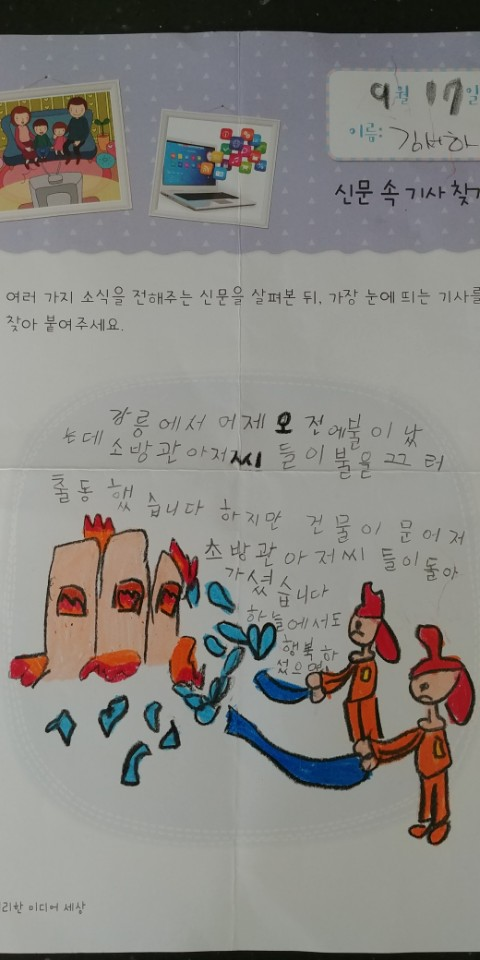 9월 17일
이름: 김서하
신문 속 기사 찾기
여러 가지 소식을 전해주는 신문을 살펴본 뒤, 가장 눈에 띄는 기사를
찾아 붙여주세요.
강릉에서 어제 오전에불이 났
는데 소방관아저씨들이불을끄터
출동했습니다 하지만 건물이 문어저
초방관아저씨들이돌아
가셨습니다
하늘에서도
행복하
섰으면
리한 미디어 세상